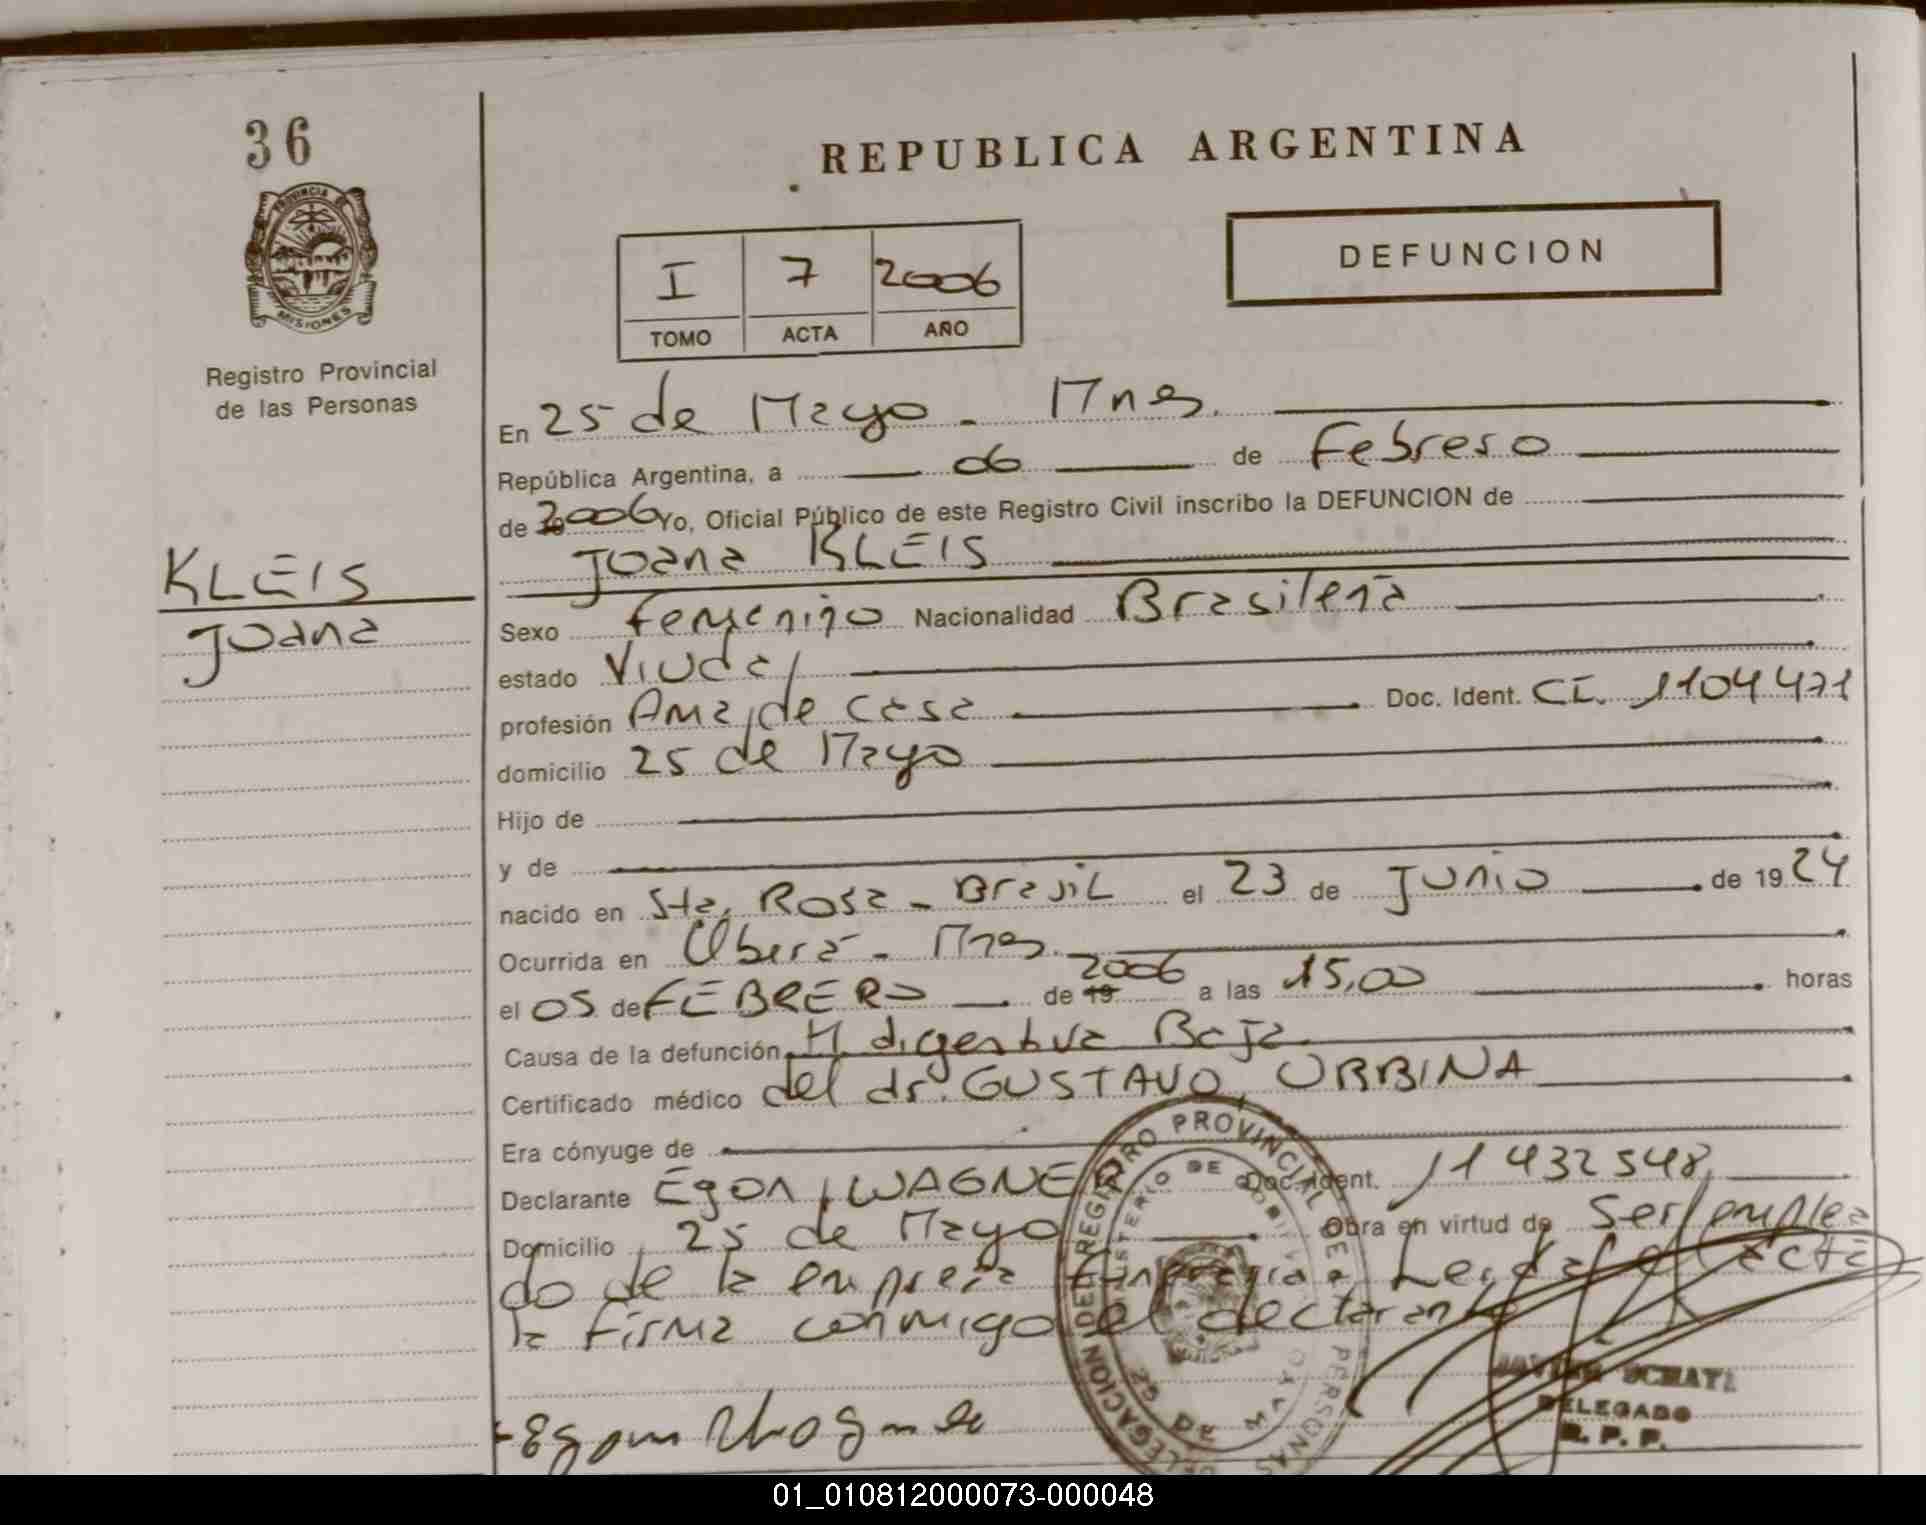 36
PROVINCIA DE
MISIONES
Registro Provincial
de las Personas
KLEIS
Joana
REPUBLICA ARGENTINA
DEFUNCION
I 7 2006
TOMO ACTA AÑO
En 25 de Mayo - Mnes.
República Argentina, a 06 de Febrero
de 2006 Yo, Oficial Público de este Registro Civil inscribo la DEFUNCION de
Joana KLEIS
Sexo Femenino Nacionalidad Brasileña
estado Viuda
profesión Ama de casa Doc. Ident. CI. 1104471
domicilio 25 de Mayo
Hijo de
y de
nacido en Sta. Rosa - Brasil el 23 de Junio de 1924
Ocurrida en Oberá - Mnes.
el 05 de FEBRERO de 19 2006 a las 15,00 horas
Causa de la defunción H. digestiva Baja
Certificado médico del dr. GUSTAVO URBINA
Era cónyuge de
Declarante Egon WAGNER Doc. Ident. 11432548
Domicilio 25 de Mayo Obra en virtud de ser emplea
do de la empresa funeraria Leída el acta
la firma conmigo el declarante
DELEGACION DEL REGISTRO PROVINCIAL DE LAS PERSONAS
MINISTERIO DE GOBIERNO
25 DE MAYO
SCHAT
DELEGADO
R. P. P.
01_010812000073-000048